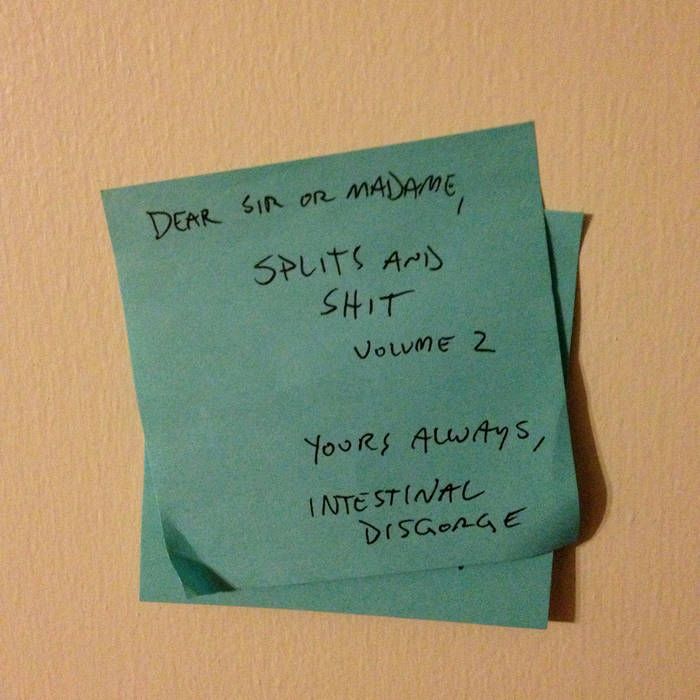 DEAR SIR OR MADAME,
SPLITS AND
SHIT
VOLUME 2
YOURS ALWAYS,
INTESTINAL
DISGORGE